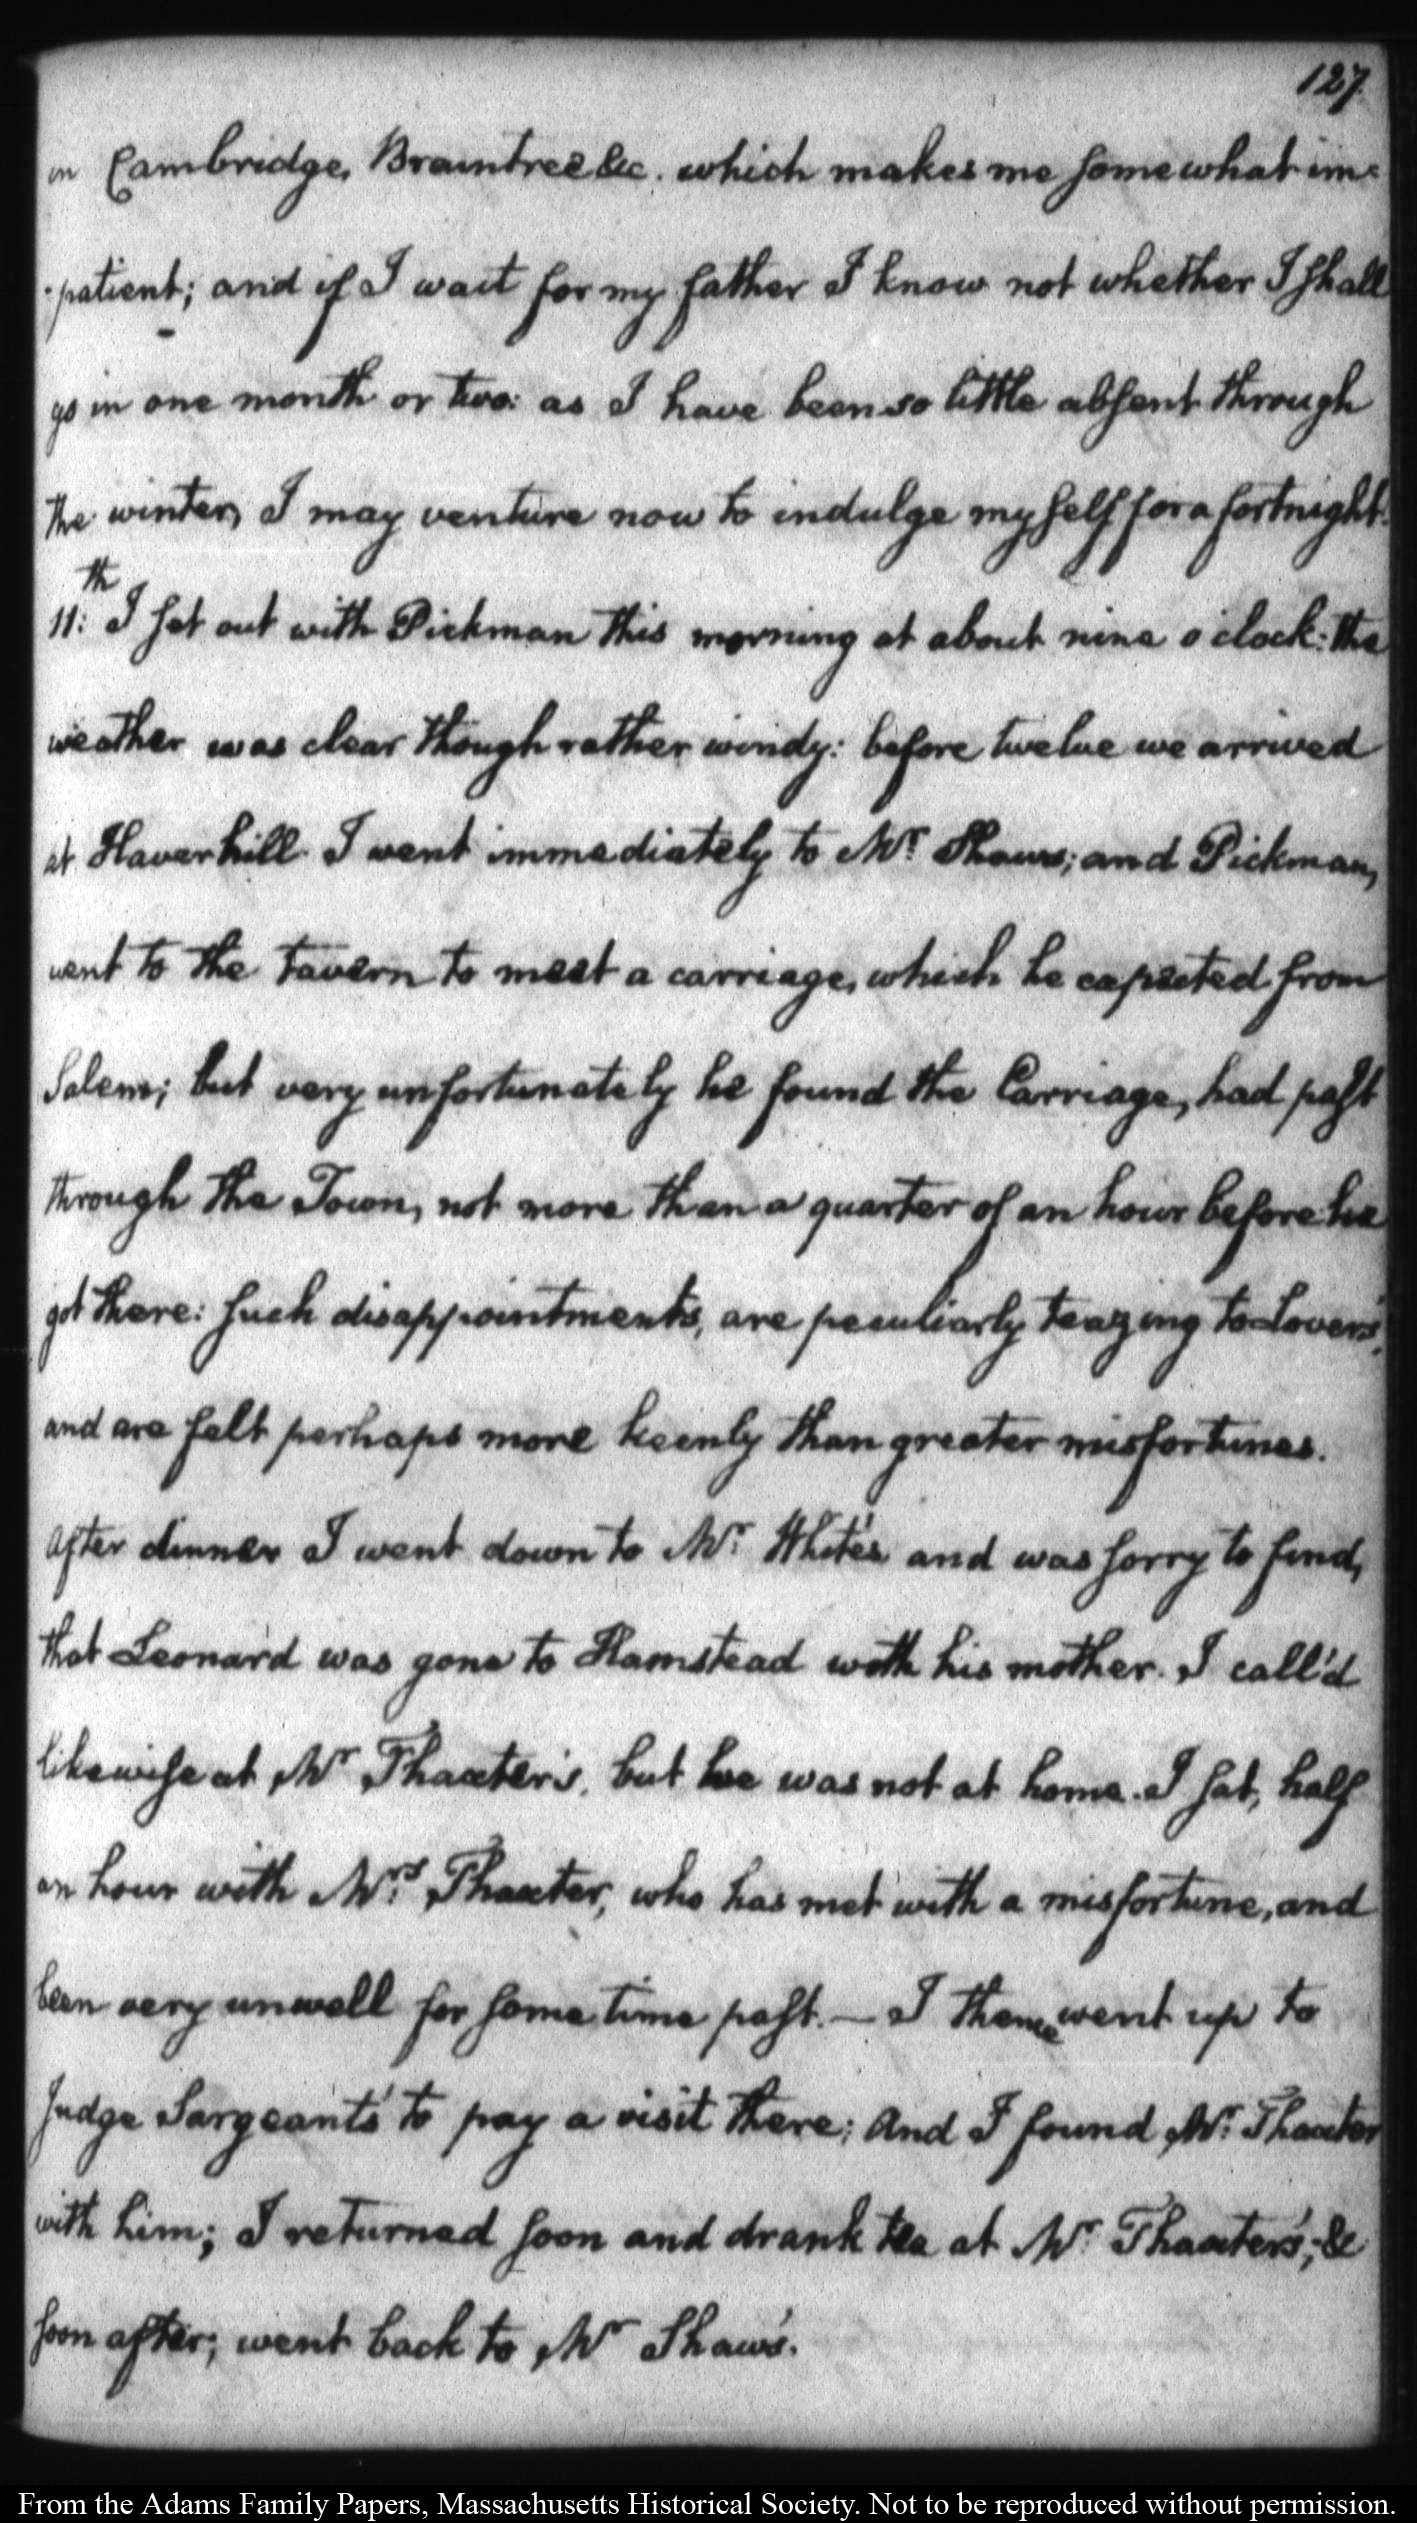 127.
in Cambridge, Braintree &c. which makes me somewhat im-
-patient; and if I wait for my father I know not whether I shall
go in one month or two: as I have been so little absent through
the winter, I may venture now to indulge myself for a fortnight.
11:th I set out with Pickman this morning at about nine o'clock: the
weather was clear though rather windy: before twelve we arrived
at Haverhill. I went immediately to Mr. Shaws; and Pickman,
went to the tavern to meet a carriage, which he expected from
Salem; but very unfortunately he found the Carriage, had past
through the Town, not more than a quarter of an hour before he
got there: such disappointments, are peculiarly teazing to Lovers,
and are felt perhaps more keenly than greater misfortunes.
After dinner I went down to Mr. White's and was sorry to find,
that Leonard was gone to Hamstead with his mother. I call'd
likewise at Mr Thaxter's, but he was not at home. I sat, half
an hour with Mrs. Thaxter, who has met with a misfortune, and
been very unwell for some time past. — I thence went up to
Judge Sargeant's to pay a visit there; And I found Mr. Thaxter
with him; I returned soon and drank tea at Mr. Thaxter's; &
soon after; went back to Mr Shaw's.
From the Adams Family Papers, Massachusetts Historical Society. Not to be reproduced without permission.